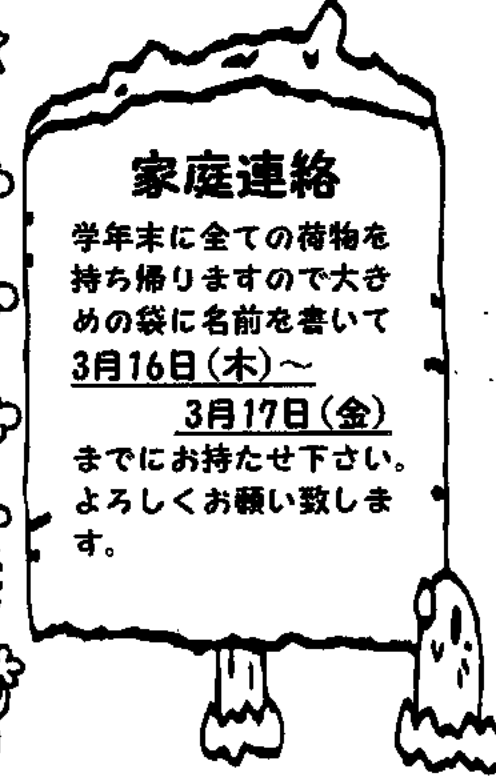 家庭連絡
学年末に全ての荷物を
持ち帰りますので大き
めの袋に名前を書いて
3月16日(木)～
3月17日(金)
までにお持たせ下さい。
よろしくお願い致しま
す。